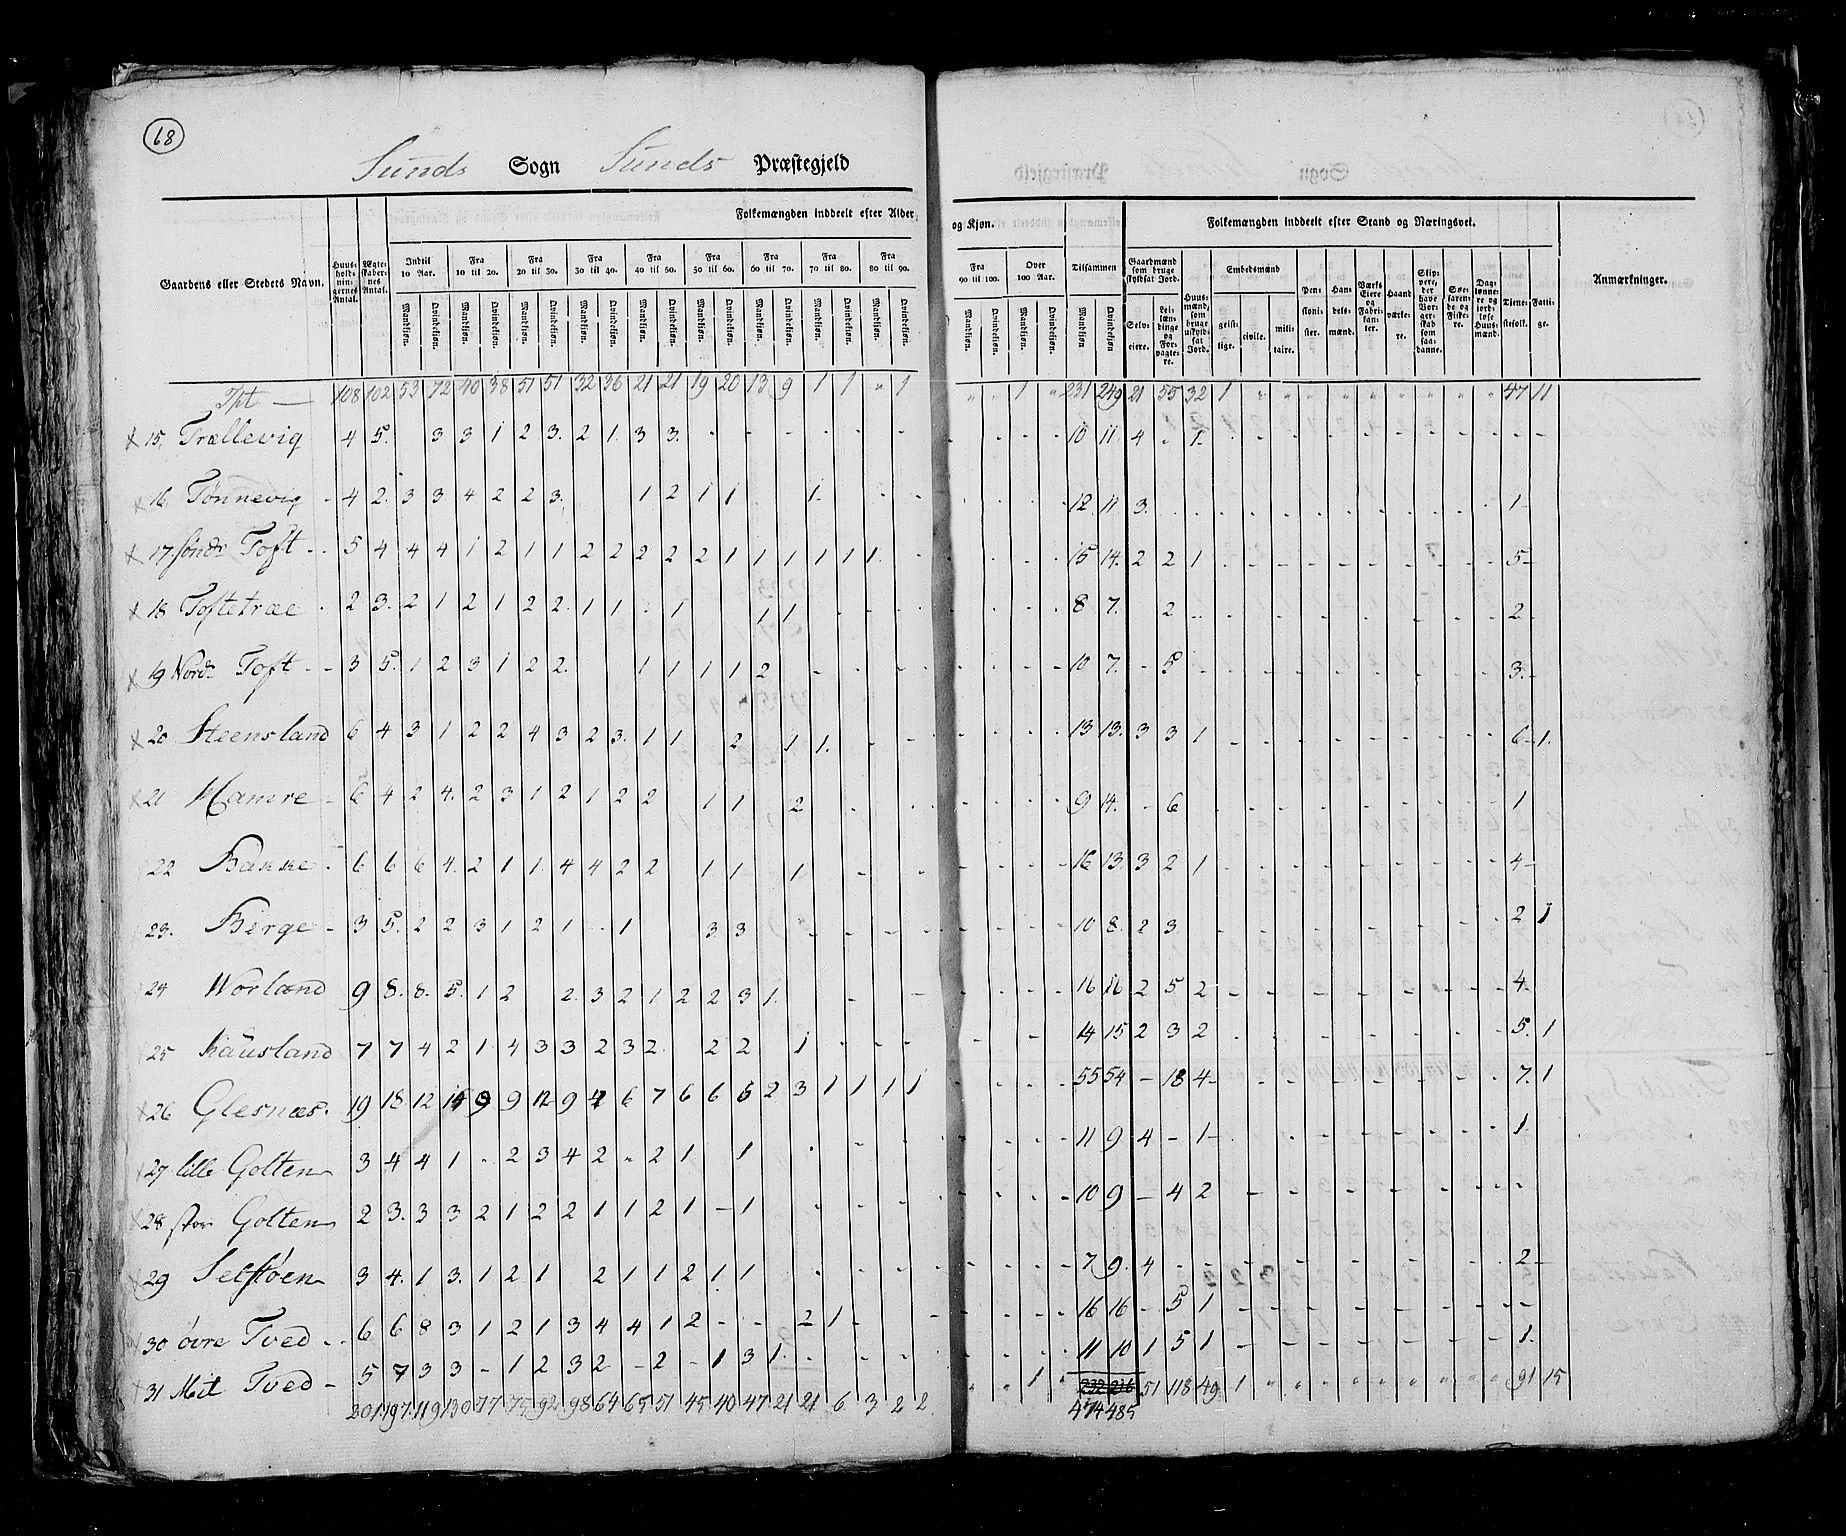 68
Sunds Sogn Sunds Præstegjeld
Folkemængden inddeelt efter Alder og Kjøn.
Folkemængden inddeelt efter Stand og Næringsvei.
Gaardens eller Stedets Navn. Huusholdningernes Antal. Ægteskabernes Antal. Indtil 10 Aar. Fra 10 til 20. Fra 20 til 30. Fra 30 til 40. Fra 40 til 50. Fra 50 til 60. Fra 60 til 70. Fra 70 til 80. Fra 80 til 90. Fra 90 til 100. Over 100 Aar. Tilsammen Gaardmænd som bruge skyldsat Jord. Huusmænd, som bruge uskyldsat Jord. Embedsmænd Pensionister. Handelsmænd. Værks Eiere og Fabrikanter. Haandværkere. Skippere, der have Borgerskab som saadanne. Søefarende og Fiskere. Daglønnere og jordløse Huusmænd. Tienestefolk. Fattige. Anmærkninger.
Mandkiøn. Qvindekiøn. Mandkiøn. Qvindekiøn. Mandkiøn. Qvindekiøn. Mandkiøn. Qvindekiøn. Mandkiøn. Qvindekiøn. Mandkiøn. Qvindekiøn. Mandkiøn. Qvindekiøn. Mandkiøn. Qvindekiøn. Mandkiøn. Qvindekiøn. Mandkiøn. Qvindekiøn. Mandkiøn. Qvindekiøn. Mandkiøn Qvindekiøn Selveiere. Leilændinge og Forpagtere. geistlige. civile. militaire.
Tpt — 108 102 53 72 40 38 51 51 32 36 21 21 19 20 13 9 1 1 " 1 " " 1 " 231 249 21 55 32 1 " " " " " " " " " 47 11
15. Trællevig 4 5. 3 3 1 2 3. 2 1. 3 3. - - - - - - - - 10 11 4 - 1. - - - - - - - - - - - -
16. Tønnevig - 4 2. 3 3. 4 2 2 3. 1 2 1 1 1. - - - 12 11 3. 1 -
17. søndr Toft - 5 4 4 4 1 2 1 1 2 2 2 2 2 1 1 1 1 1 1. - 15 14. 2 2 1 - 5 -
18 Toftetræe - 2 3. 2 1 2 1 2 2. 1 1 - 1 1 1 - - - 8 7. 2 - 2 -
19 Nordr Toft - - 3 5. 1 2 3 1 2 2. 1 1 1 1 2 - - - 10 7. - 5 - 3. -
20 Steensland 6 4 3 1 2 2 4 3 2 3. 1 1 2 1 1. - - - 13 13. 3 3 1 - 6 - 1.
21 Hamre - 6 4 2 4. 2 3 1 2 1 2 2 1 1 2 - - 9 14. - 6 - 1
22 Bakke - 6 6 6 4. 2 1 1. 4 4 2 2 1 1 1 - - 16 13 3 2 1 - 4 -
23. Berge - 3 5. 2 2 3 1 2 1 - 1 3 3 - - - - 10 8. 2 3 - 2 1
24 Worland 9 8. 8. 5. 1 2 2. 3 2 1 2 2 3 1. - - 16 16 2 5 2 - 4 -
25 Kausland 7 7 4 2 1 4 3 3 2 3 2 2 2 1 - - - 14 15 2 3 2 - 5. 1
26 Glesnæs. 19 18 12 9 9 12 9 4 6 7 6 6 6 2 3 1 1 1 1 55 54 - 18 4 - 7. 1
27 lille Golten 3 4 4 1 - 2 3 4 2 " 2 1 1 - - - 11 9 4 - 1 - 1.
28 stor Golten 2 3. 3 3 2 1 2 2 1 1 2 1 - 1 - - - 10 9 - 4 2 - - -
29 Selstøen 3 4. 1 3. 1 2 1 2 1 1 2 1 1 - - - 7 9. 4 - - 2 -
30 øvre Tved - - 6 6 8 3 1 2 1 3 4 4 1 2 - - 2 1 - - 16 16 - 5 1 - - -
31 Mit Tved - 5 7 3 3 - 1 2 3 2 - 2 - 1 3 1. - - - 11 10 1 5 1 - 1. -
201. 197. 119 130 77 75 92 98 64 65 51 45 40 47 21 21 6 3 2 2 " " 1 " 232 236 51 118 49 1 " " " " " " " " " 91 15
474 485